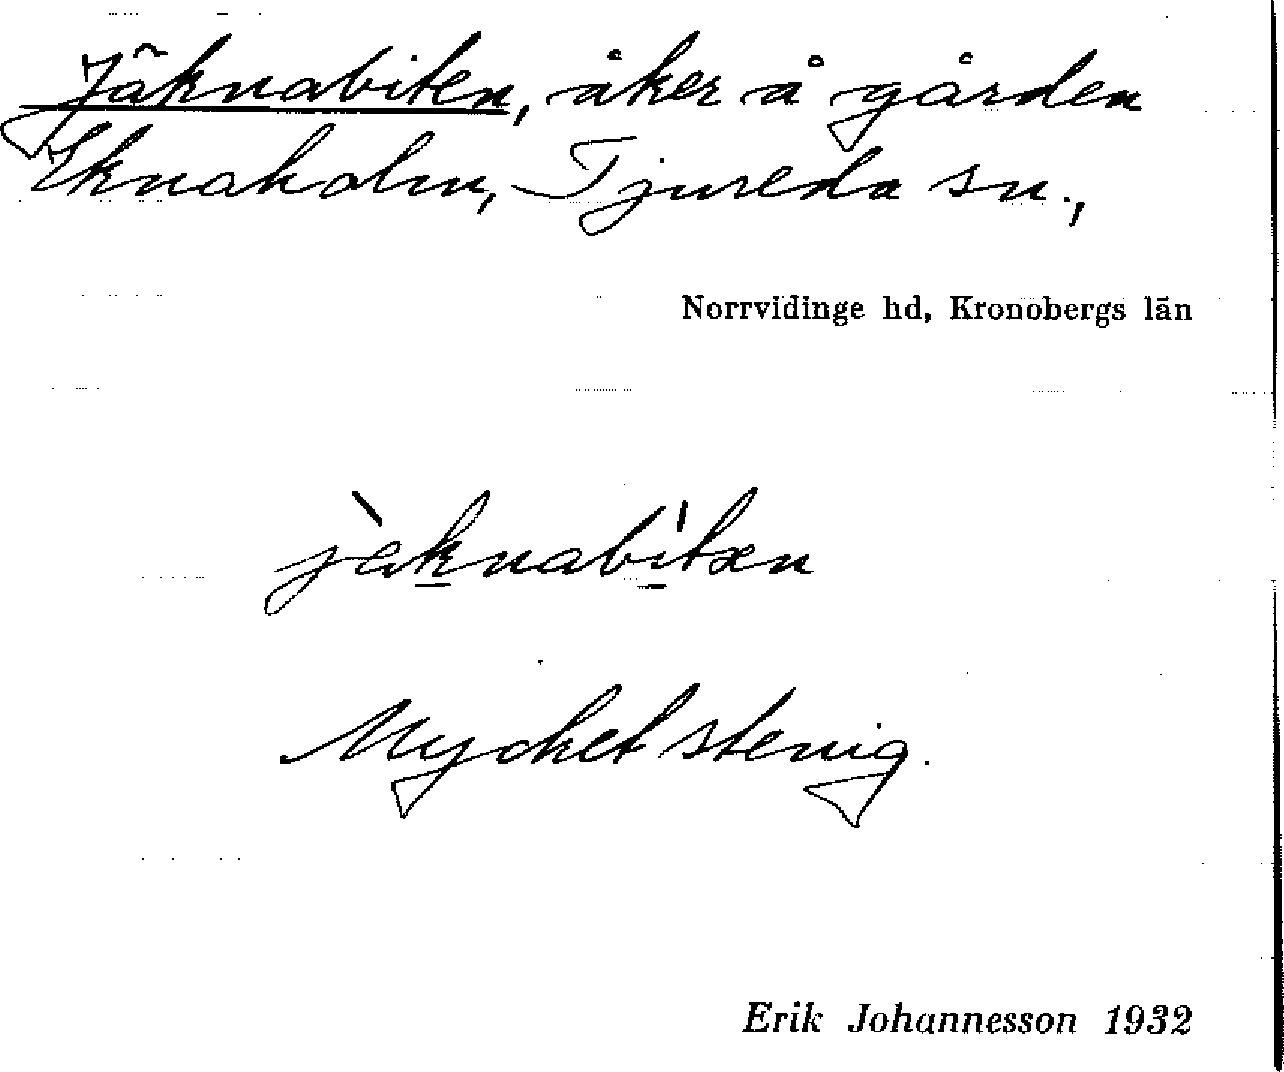 Jäknabiten, åker å gården
Eknaholm, Tjureda sn.,
Norrvidinge hd, Kronobergs län
jàknabi̍tæn
Mycket stenig.
Erik Johannesson 1932